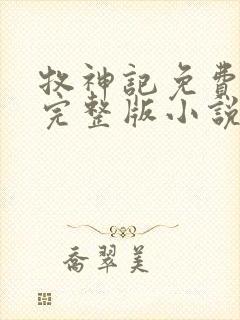 牧神記免費
完整版小說
喬翠美